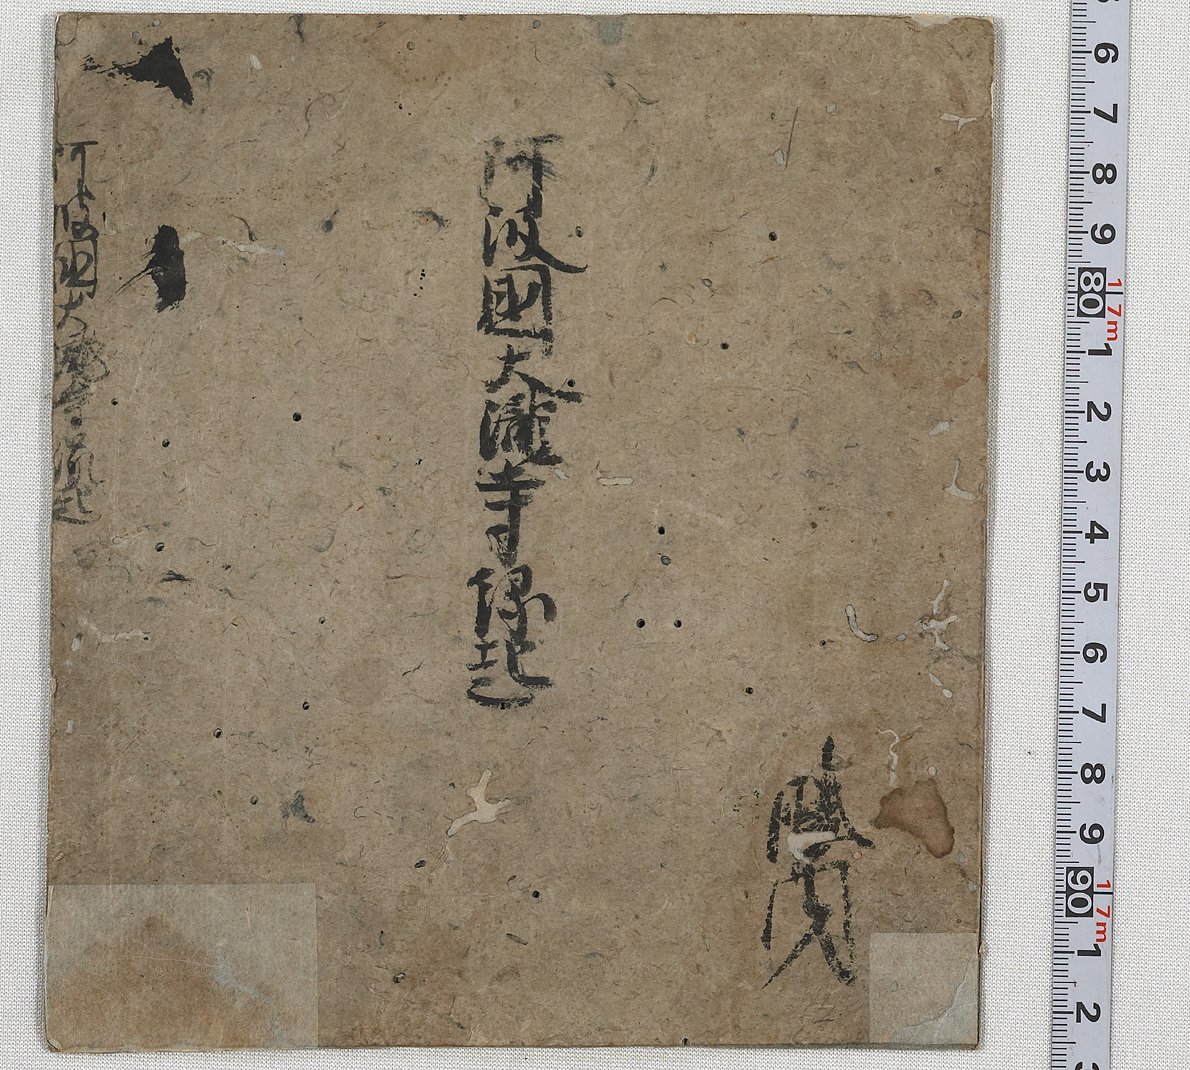 阿波國大瀧寺縁起
阿波國大瀧寺縁起
6
7
8
9
80
17m
1
2
3
4
5
6
7
8
9
90
17m
1
2
3